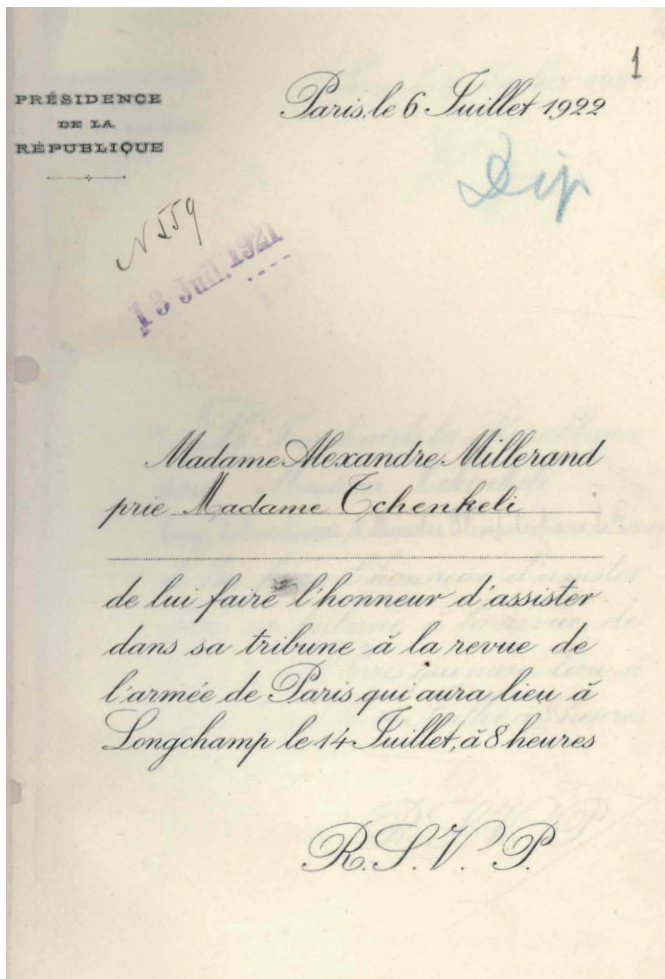 1
PRÉSIDENCE
DE LA
RÉPUBLIQUE
Paris, le 6 Juillet 1922
Dip
N 559
13 Juil. 1921
Madame Alexandre Millerand
prie Madame Tchenkeli
de lui faire l'honneur d'assister
dans sa tribune à la revue de
l'armée de Paris qui aura lieu à
Longchamp le 14 Juillet, à 8 heures
R.S.V.P.